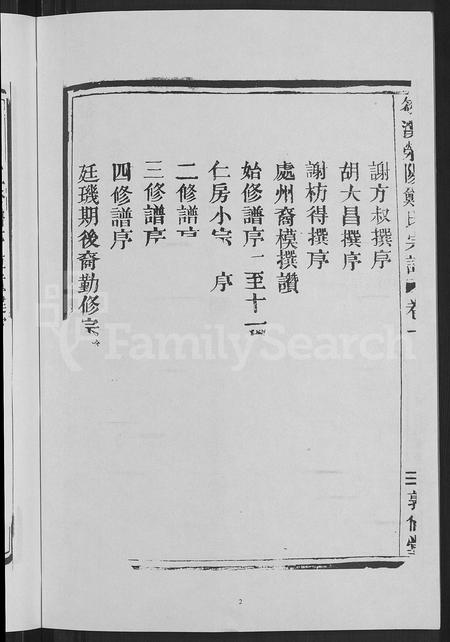 滎陽鄭氏宗譜 卷一
三 敦倫堂
謝方叔撰序
胡大昌撰序
謝枋得撰序
處州裔模撰讚
始修譜序一至十一
仁房小宗 序
二修譜序
三修譜序
四修譜序
廷璣期後裔勤修宗
FamilySearch
2